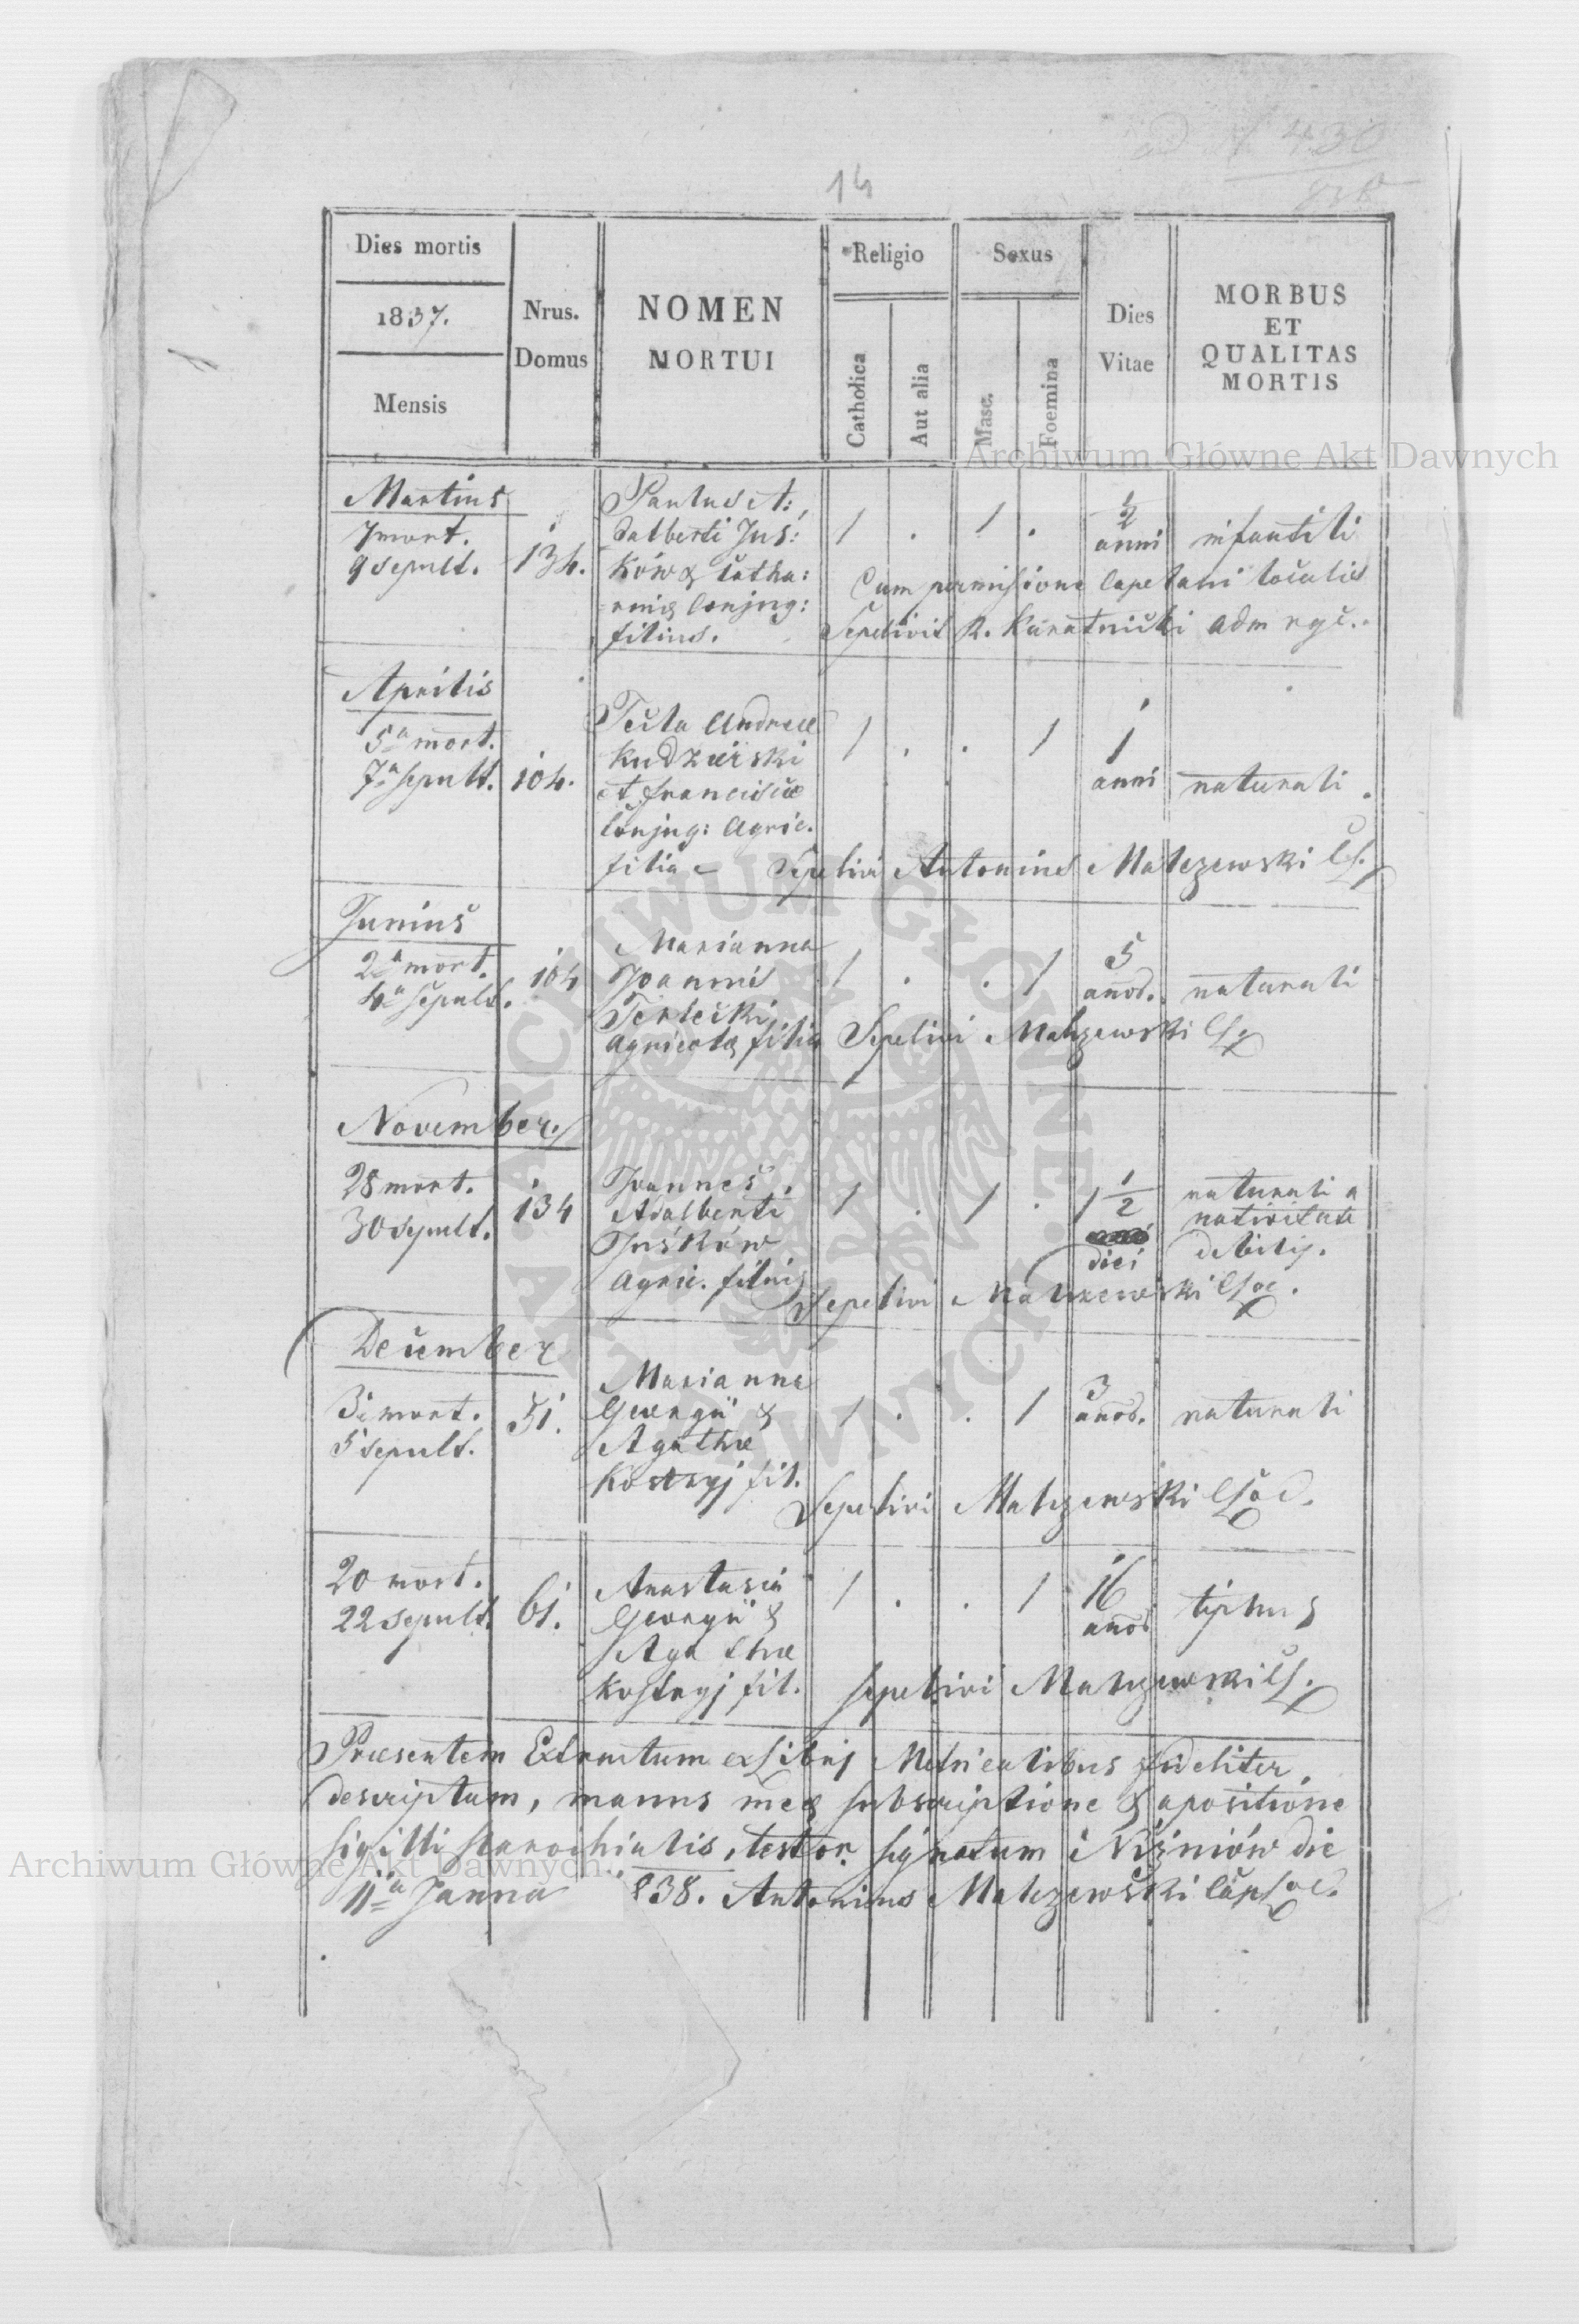 14
Dies mortis
1837.
Mensis
Nrus.
Domus
NOMEN
MORTUI
Religio
Catholica
Aut alia
Sexus
Masc.
Foemina
Dies
Vitae
MORBUS
ET
QUALITAS
MORTIS
Archiwum Główne Akt Dawnych
Martius
7 mort.
9 sepult.
134.
Paulus A:
dalberti Jus:
ków & Catha:
rinæ Conjug:
filius.
1 . 1 .
1/2
anni
infantili
Cum permissione Capelani localis
Sepelivit R. Kuratnicki Adm
Aprilis
5a mort.
7a sepult.
104.
Tecla Andreæ
Kudzierski
et Franciscæ
Conjug: Agric.
filia
1 . . 1
1
anni
naturali
Sepelivi Antonius Malczewski
Junius
2a mort.
4a sepult.
104
Marianna
Joannis
Terlecki
Agricolæ filia
1 . . 1
5
anor.
naturali
Sepelivi Malczewski
November.
28 mort.
30 sepult.
134
Joannes
Adalberti
Juśków
Agric. filius
1 . 1 .
1 1/2
diei
naturali a
nativitate
debilis.
Sepelivi Malczewski
December
3 mort.
5 sepult.
51.
Marianna
Georgii &
Agathæ
Kostryj fil.
1 . . 1
3
anor.
naturali
Sepelivi Malczewski
20 mort.
22 sepult.
61.
Anastasia
Georgii &
Agathæ
Kostryj fil.
1 . . 1
16
anor
tiphus
Sepelivi Malczewski
Præsentem Extractum ex Libris Metricalibus fideliter
descriptum, manus meæ subscriptione & apositione
Sigilli Parochialis, testor. Signatum i Niżniów die
11a Janua 838. Antonius Malczewski
Archiwum Główne Akt Dawnych
ARCHIWUM GŁÓWNE AKT DAWNYCH